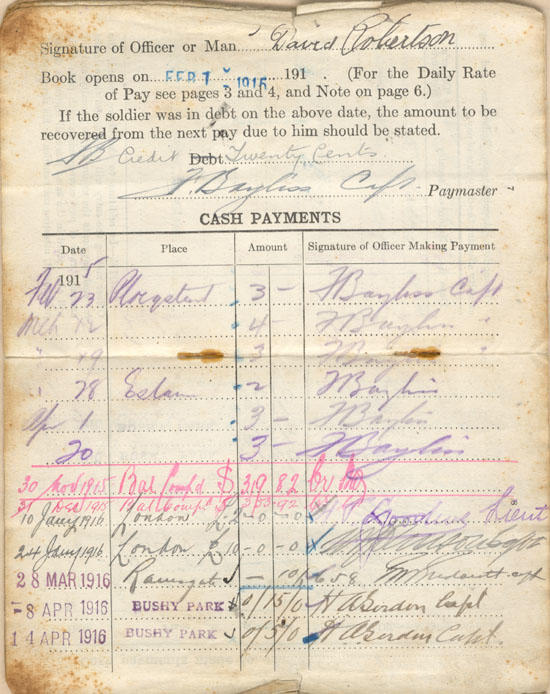 Signature of Officer or Man David Robertson
Book opens on FEB 1 1915 191 . (For the Daily Rate
of Pay see pages 3 and 4, and Note on page 6.)
If the soldier was in debt on the above date, the amount to be
recovered from the next pay due to him should be stated.
Credit Debt Twenty Cents.
F. Bayliss Capt. Paymaster
CASH PAYMENTS
Date Place Amount Signature of Officer Making Payment
1915
Feb 23 3 - F Bayliss Capt
Mch 12 4 - F Bayliss "
" 19 3 F Bayliss "
" 28 2 F Bayliss
Apr 1 3 - F Bayliss
20 3 - F Bayliss
30 Nov 1915 Bal Comp'd $ 319.82
31 Dec 1915 Bal Comp'd $
10 Jany 1916 London £ - 0 - 0 Lieut
24 Jany 1916 London £10 - 0 - 0 Capt
28 MAR 1916 Ramsgate - 10/ capt
-8 APR 1916 BUSHY PARK 0/15/0 H A Gordon Capt
14 APR 1916 BUSHY PARK 0/5/0 H A Gordon Capt.